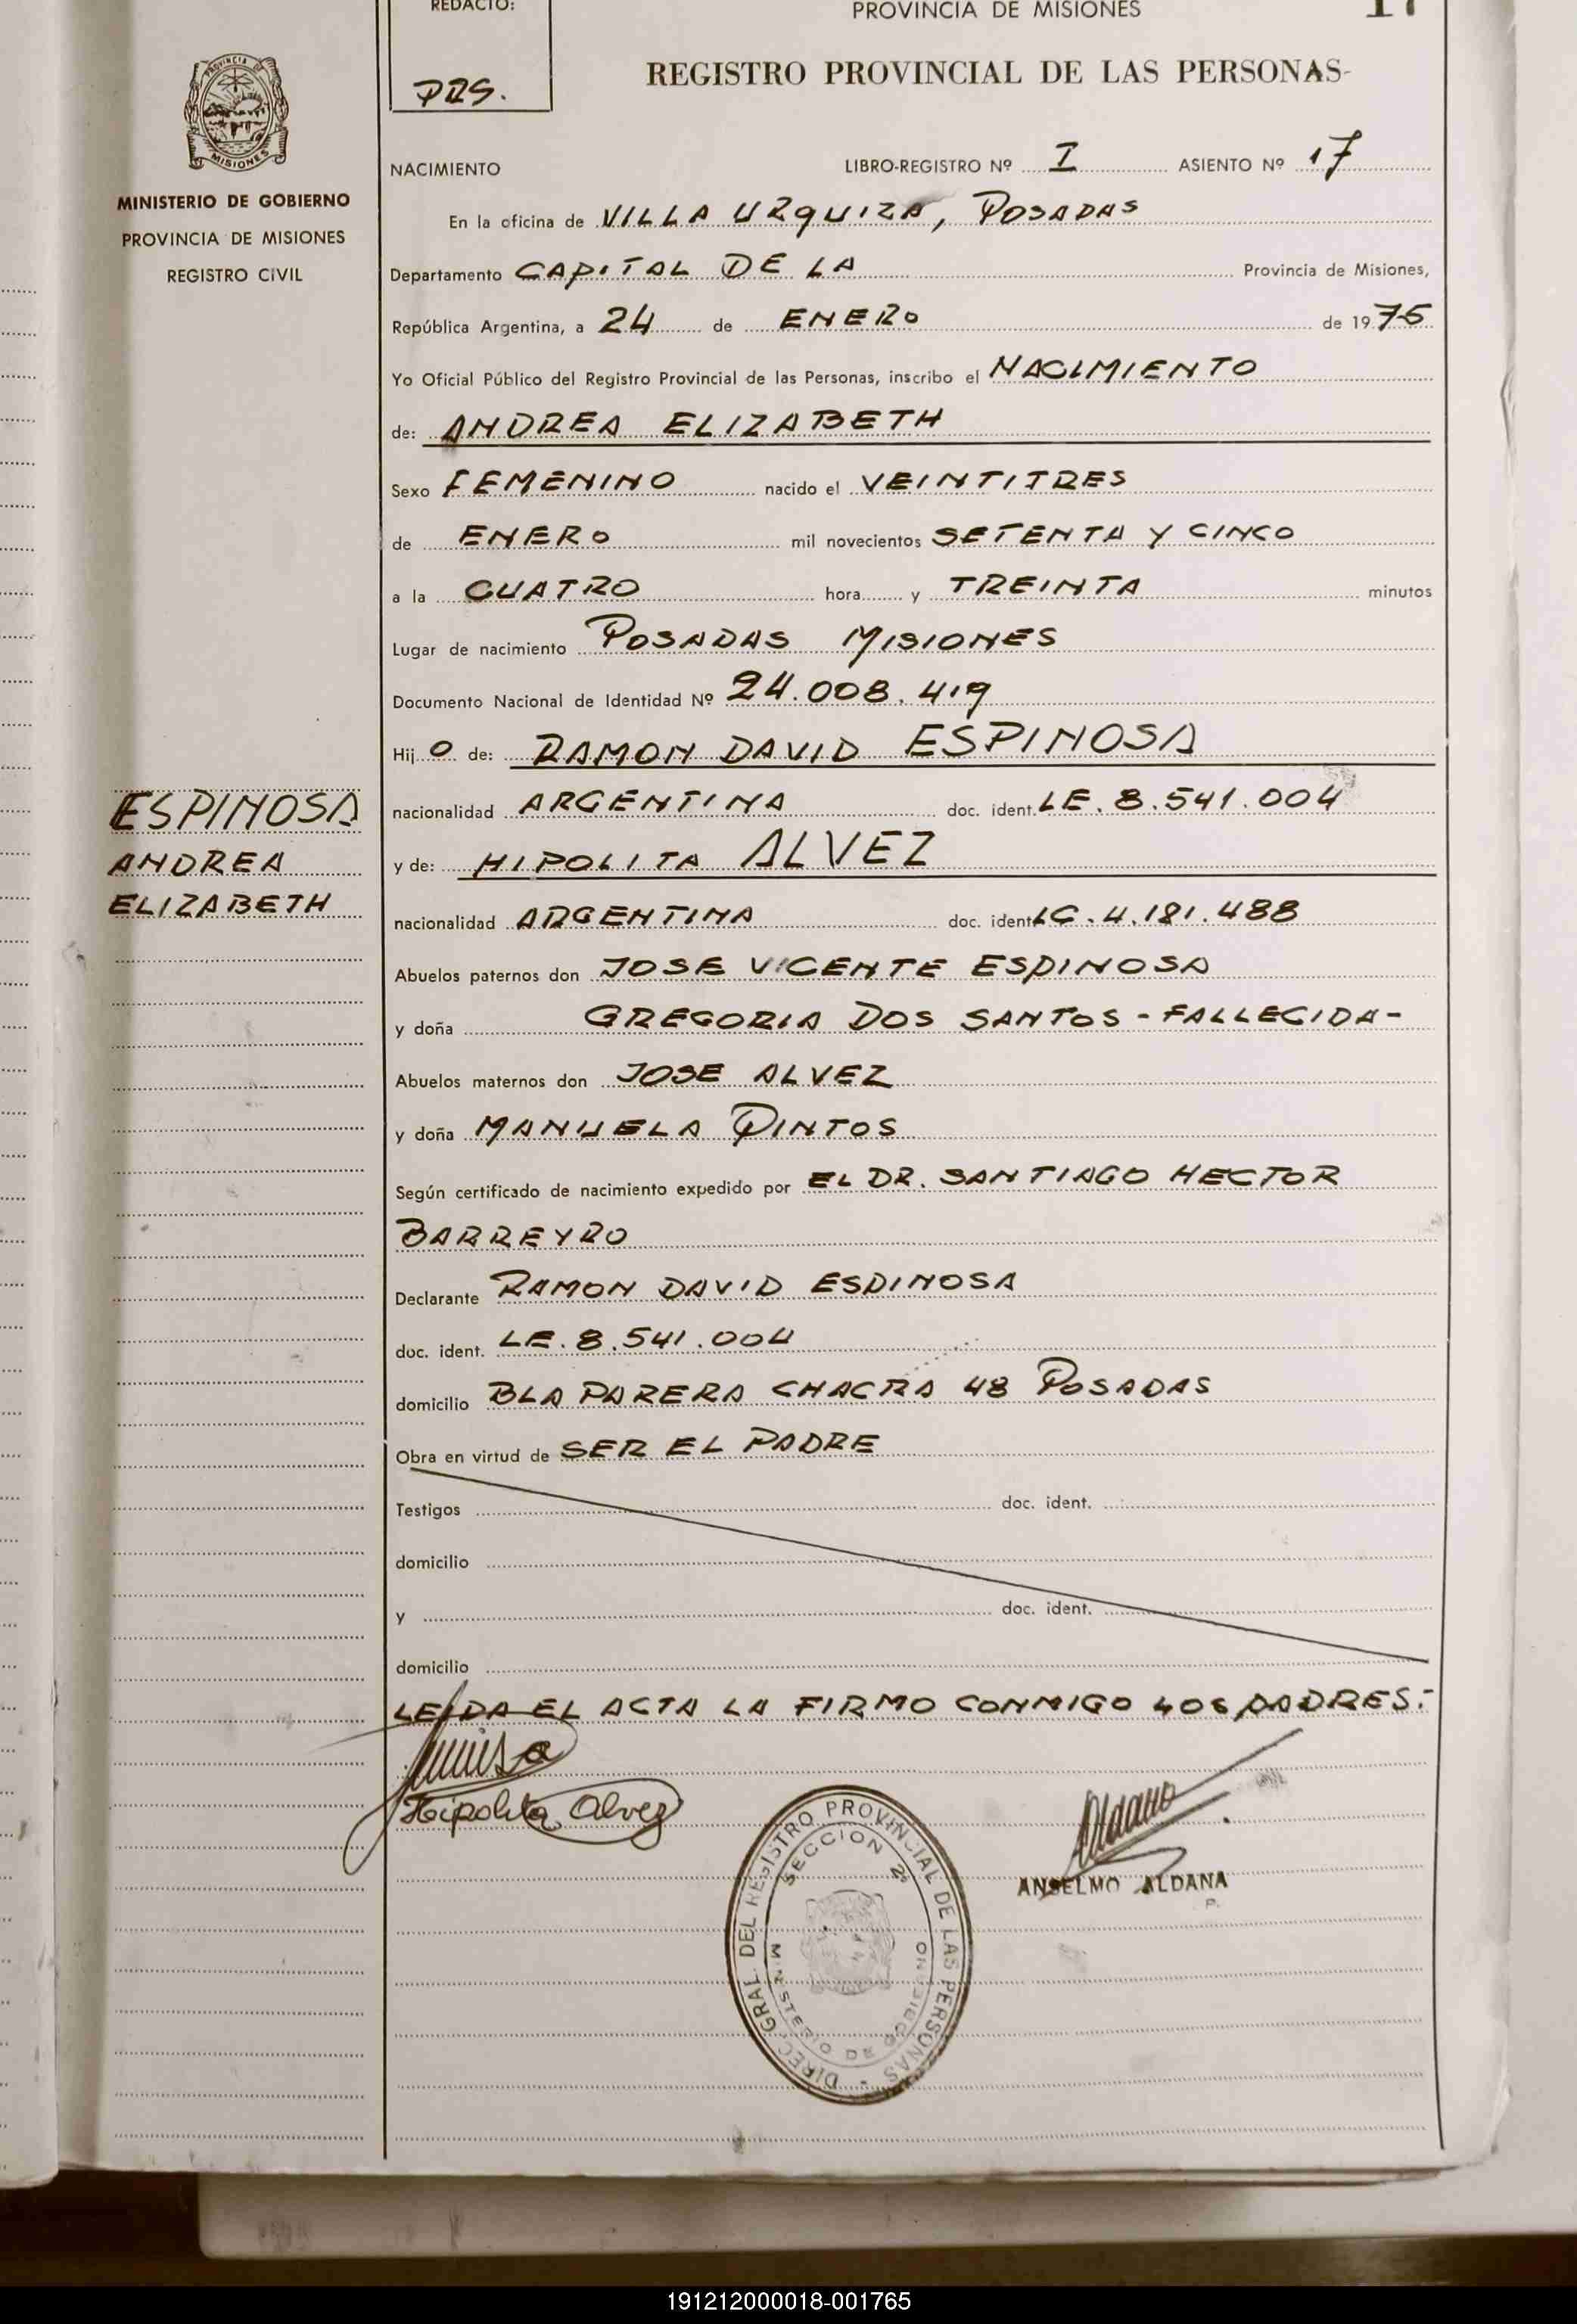 REDACTO:
PRS.
PROVINCIA DE MISIONES
17
REGISTRO PROVINCIAL DE LAS PERSONAS-
PROVINCIA DE
MISIONES
MINISTERIO DE GOBIERNO
PROVINCIA DE MISIONES
REGISTRO CIVIL
NACIMIENTO LIBRO-REGISTRO Nº I ASIENTO Nº 17
En la oficina de VILLA URQUIZA, POSADAS
Departamento CAPITAL DE LA Provincia de Misiones,
República Argentina, a 24 de ENERO de 1975
Yo Oficial Público del Registro Provincial de las Personas, inscribo el NACIMIENTO
de: ANDREA ELIZABETH
Sexo FEMENINO nacido el VEINTITRES
de ENERO mil novecientos SETENTA Y CINCO
a la CUATRO hora y TREINTA minutos
Lugar de nacimiento POSADAS MISIONES
Documento Nacional de Identidad Nº 24.008.419
Hij O de: RAMON DAVID ESPINOSA
ESPINOSA
ANDREA
ELIZABETH
nacionalidad ARGENTINA doc. ident. LE. 8.541.004
y de: HIPOLITA ALVEZ
nacionalidad ARGENTINA doc. ident LC. 4.181.488
Abuelos paternos don JOSE VICENTE ESPINOSA
y doña GREGORIA DOS SANTOS - FALLECIDA-
Abuelos maternos don JOSE ALVEZ
y doña MANUELA PINTOS
Según certificado de nacimiento expedido por EL DR. SANTIAGO HECTOR
BARREYRO
Declarante RAMON DAVID ESPINOSA
doc. ident. LE. 8.541.004
domicilio BLA PARERA CHACRA 48 POSADAS
Obra en virtud de SER EL PADRE
Testigos doc. ident.
domicilio
y doc. ident.
domicilio
LEIDA EL ACTA LA FIRMO CONMIGO LOS PADRES:
Hipolita Alvez
Aldana
ANSELMO ALDANA
DIREC. GRAL. DEL REGISTRO PROVINCIAL DE LAS PERSONAS -
SECCION 2ª
MINISTERIO DE GOBIERNO
191212000018-001765